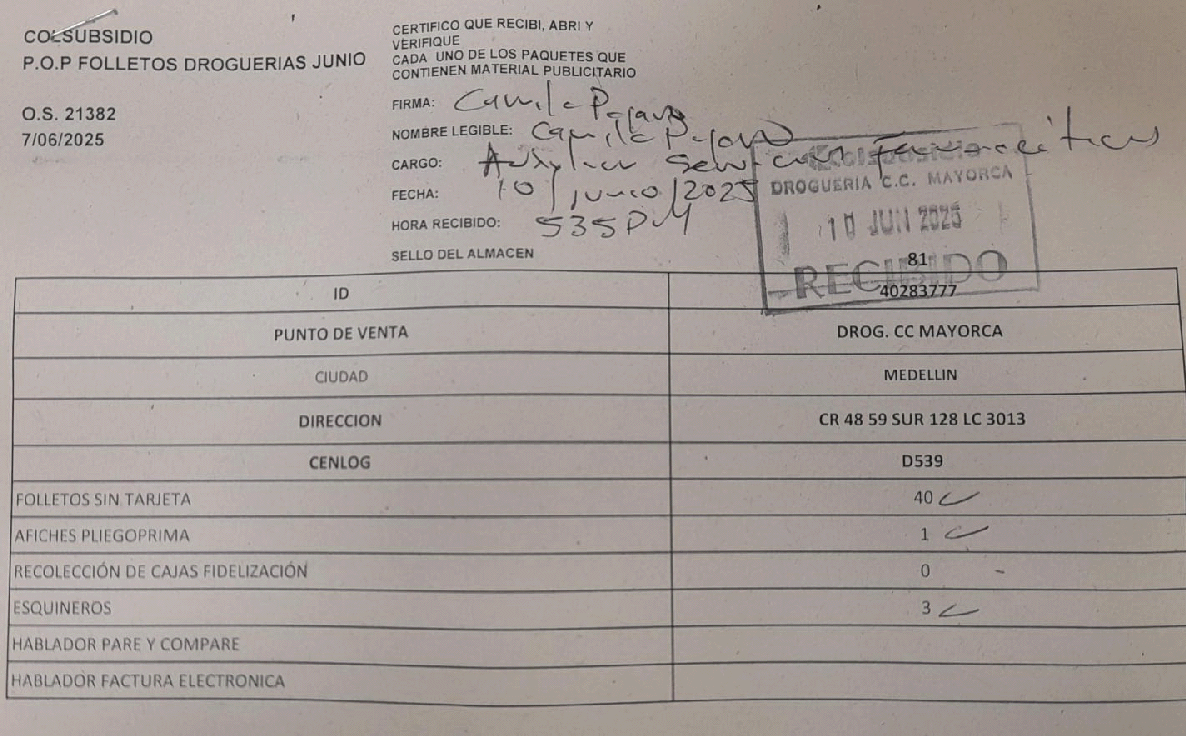 COLSUBSIDIO
P.O.P FOLLETOS DROGUERIAS JUNIO
O.S. 21382
7/06/2025
CERTIFICO QUE RECIBI, ABRI Y
VERIFIQUE
CADA UNO DE LOS PAQUETES QUE
CONTIENEN MATERIAL PUBLICITARIO
FIRMA: Camila
NOMBRE LEGIBLE: Camila
CARGO: Auxyliar Servicios farmaceiticos
FECHA: 10/junio/2025
HORA RECIBIDO: 535 PM
SELLO DEL ALMACEN
Colsubsidio
DROGUERIA C.C. MAYORCA
10 JUN 2025
RECIBIDO
81
ID 40283777
PUNTO DE VENTA DROG. CC MAYORCA
CIUDAD MEDELLIN
DIRECCION CR 48 59 SUR 128 LC 3013
CENLOG D539
FOLLETOS SIN TARJETA 40
AFICHES PLIEGOPRIMA 1
RECOLECCIÓN DE CAJAS FIDELIZACIÓN 0 -
ESQUINEROS 3
HABLADOR PARE Y COMPARE
HABLADOR FACTURA ELECTRONICA